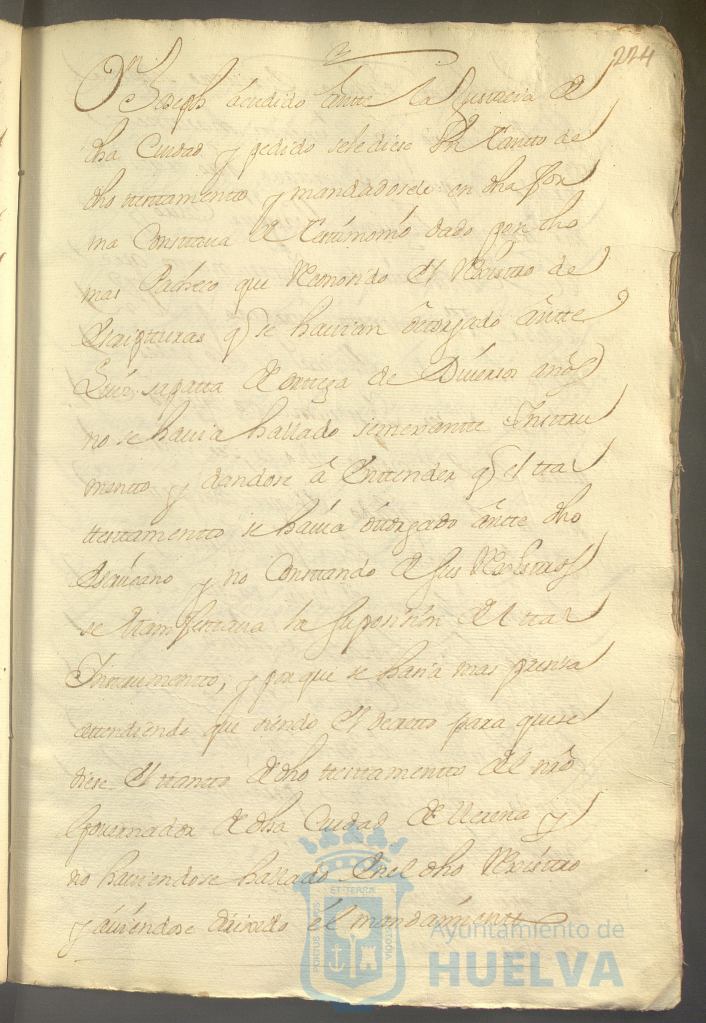 224
Dn Joseph acudido antte la Justicia de
dha Ciudad y pedido se le diese Un tantto de
dho testamentto y mandadosele en dha for
ma Consttava de testtimonio dado por tho
mas Pacheco que Reconosido el Rexistro de
Escripturas q se havian otorgado antte
Luis Sapatta de Ortega de Diversos años
no se havia hallado semexantte Instru
mentto y dandose á Enttender q el ttal
testtamentto se havia otorgado antte dho
Escrivano y no Consttando de sus Rexistros
se manifesttava la suposision del ttal
Instrumentto, y porque se haria mas presisa
attendiendo que siendo el decretto para que se
diese el ttantto de dho testtamentto del nro
Governador de dha Ciudad de Llerena y
no haviendose hallado En el dho Rexisttro
y haviendose el mandamientto
Ayuntamiento de
HUELVA
PORTUS MARIS
ET TERRÆ
CUSTODIA